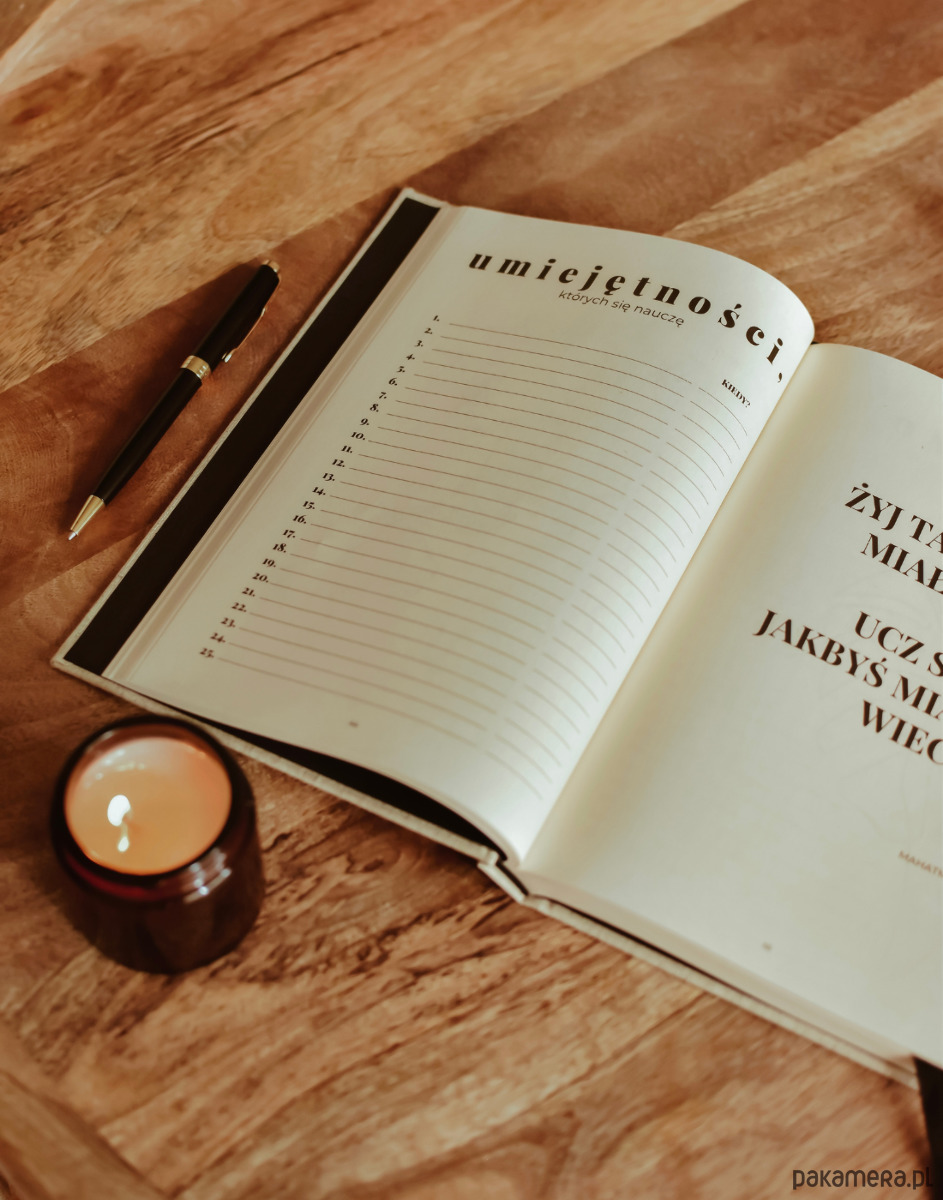 umiejętności,
których się nauczę
KIEDY?
1.
2.
3.
4.
5.
6.
7.
8.
9.
10.
11.
12.
13.
14.
15.
16.
17.
18.
19.
20.
21.
22.
23.
24.
25.
ŻYJ TA
MIAŁ
UCZ S
JAKBYŚ MIA
WIEC
MAHATM
pakamera.pl